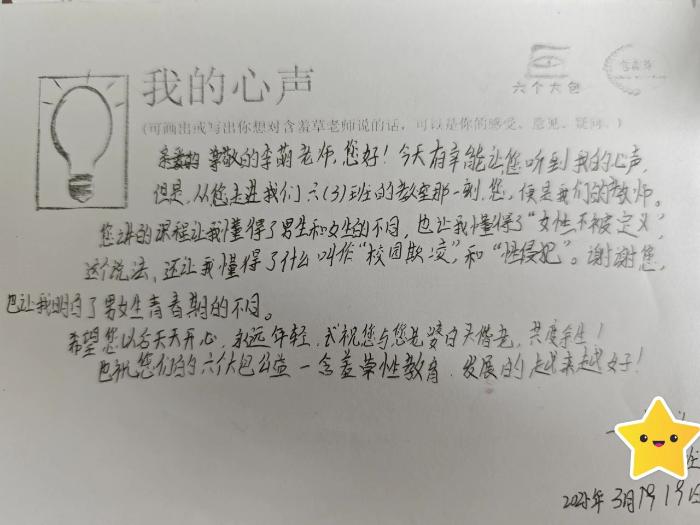 我的心声
六个大包
(可画出或写出你想对含羞草老师说的话,可以是你的感受、意见、疑问。)
尊敬的李萌老师,您好!今天有幸能让您听到我的心声,
但是,从您走进我们六(3)班的教室那一刻,您,便是我们的教师。
您讲的课程让我懂得了男生和女生的不同,也让我懂得了“女性不被定义”,
这个说法,还让我懂得了什么叫作“校园欺凌”,和“性侵犯”。谢谢您,
也让我明白了男女生青春期的不同。
希望您以后天天开心,永远年轻,或祝您与您老婆白头偕老,共度余生!
也祝您们的六个大包公益一含羞草性教育,发展的越来越好!
2025年3月19日